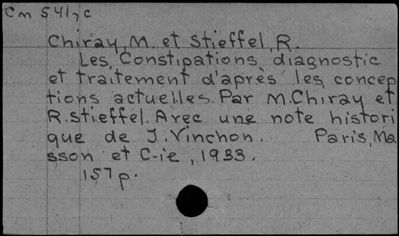 Cm 541,c
Chiray, M. et Stieffel, R.
Les Constipations, diagnostic
et traitement d'après les concep
tions actuelles. Par M. Chiray et
R. Stieffel. Avec une note histori
que de J. Vinchon. Paris, Ma
sson et C-ie, 1933.
157 p.